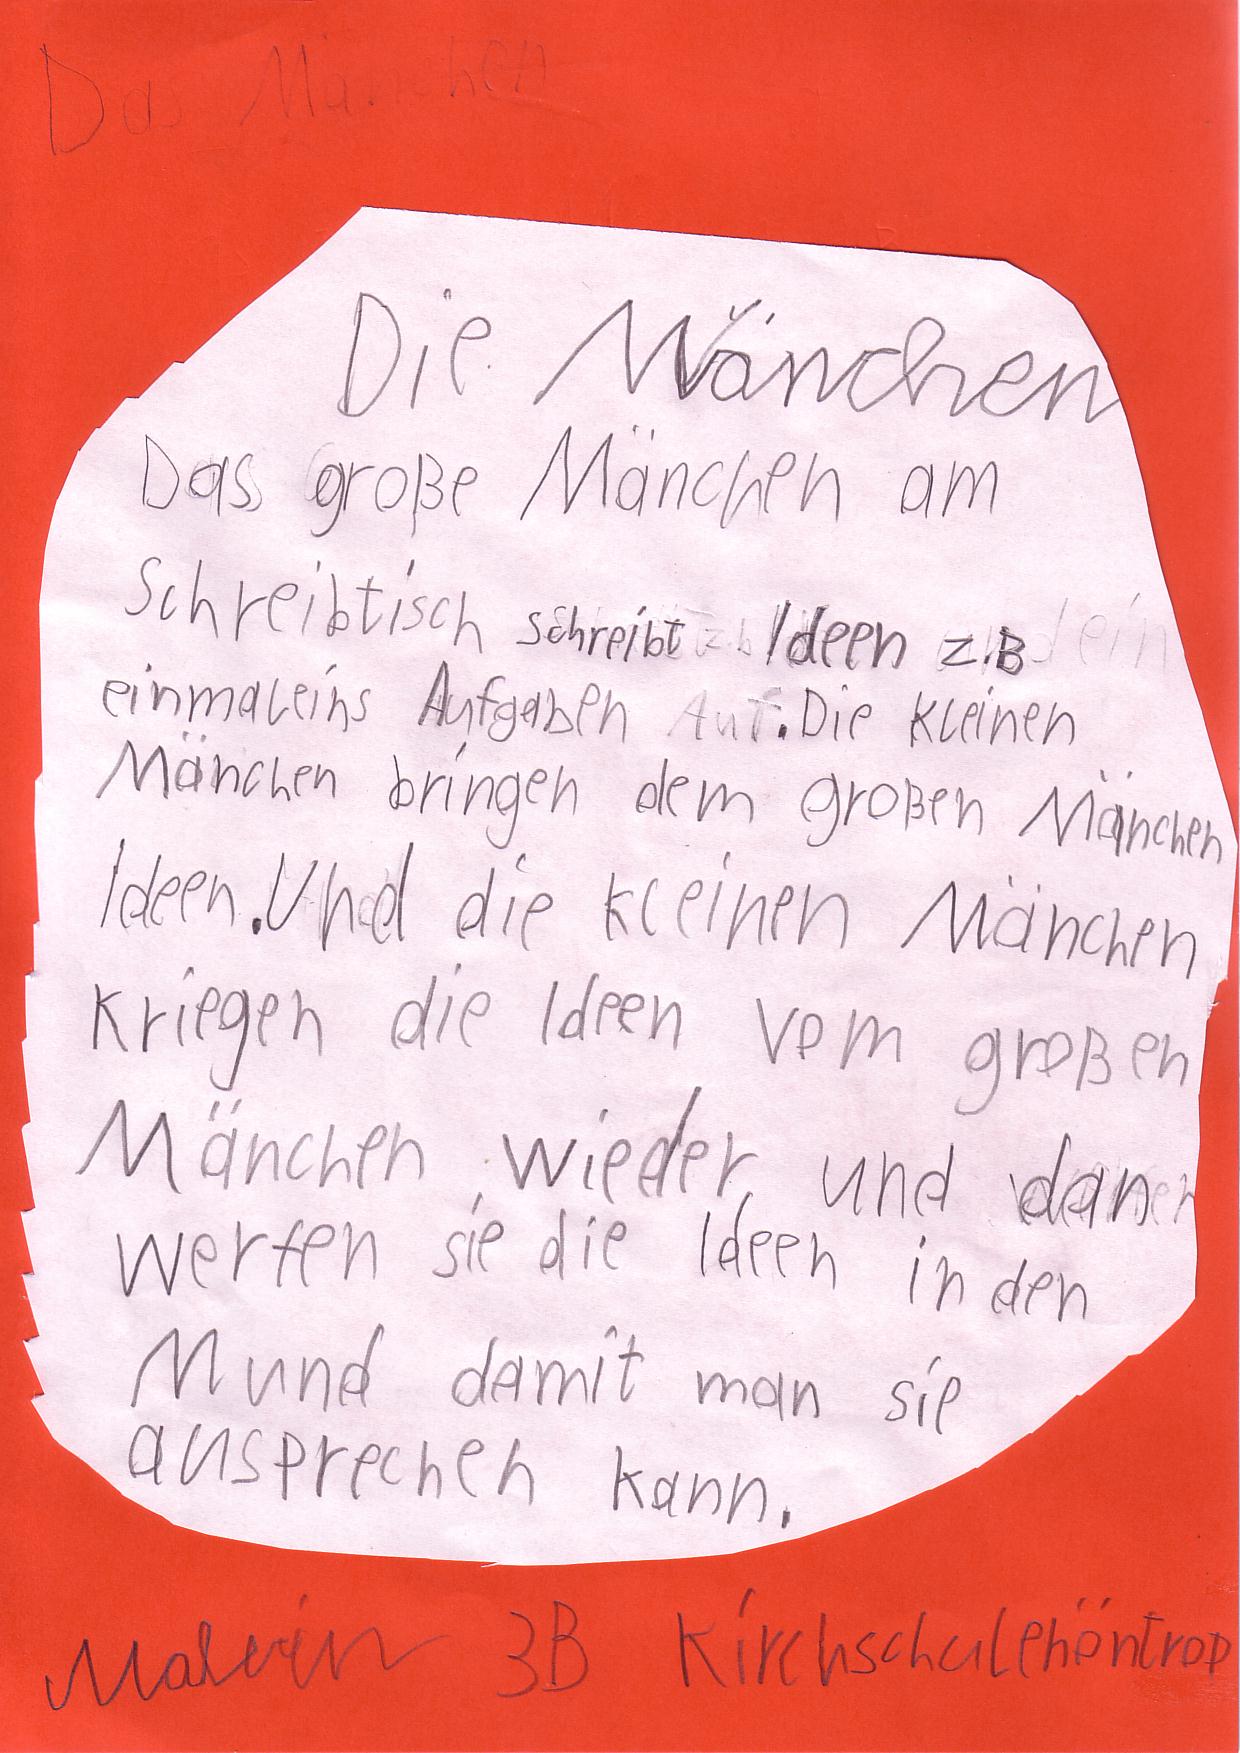 Das Mänchen
Die Mänchen
Das große Mänchen am
Schreibtisch schreibt Ideen z.B
einmaleins Aufgaben .Die kleinen
Mänchen bringen dem großen Mänchen
Ideen.Und die kleinen Mänchen
kriegen die Ideen vom großen
Mänchen wieder, und dan
werfen sie die Ideen in den
Mund damit man sie
ausprechen kann.
3B Kirchschulehöntrop